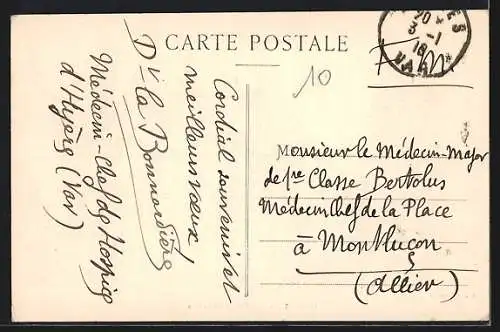 CARTE POSTALE
20
3 -1
16
VAR
F M
10
Cordial souvenir et
meilleurs vœux
Dr la Bonnardière
Médecin-Chef de l'Hospice
d'Hyères (Var)
Monsieur le Médecin-Major
de 1re Classe Bertolus
Médecin Chef de la Place
à Montluçon
(Allier)